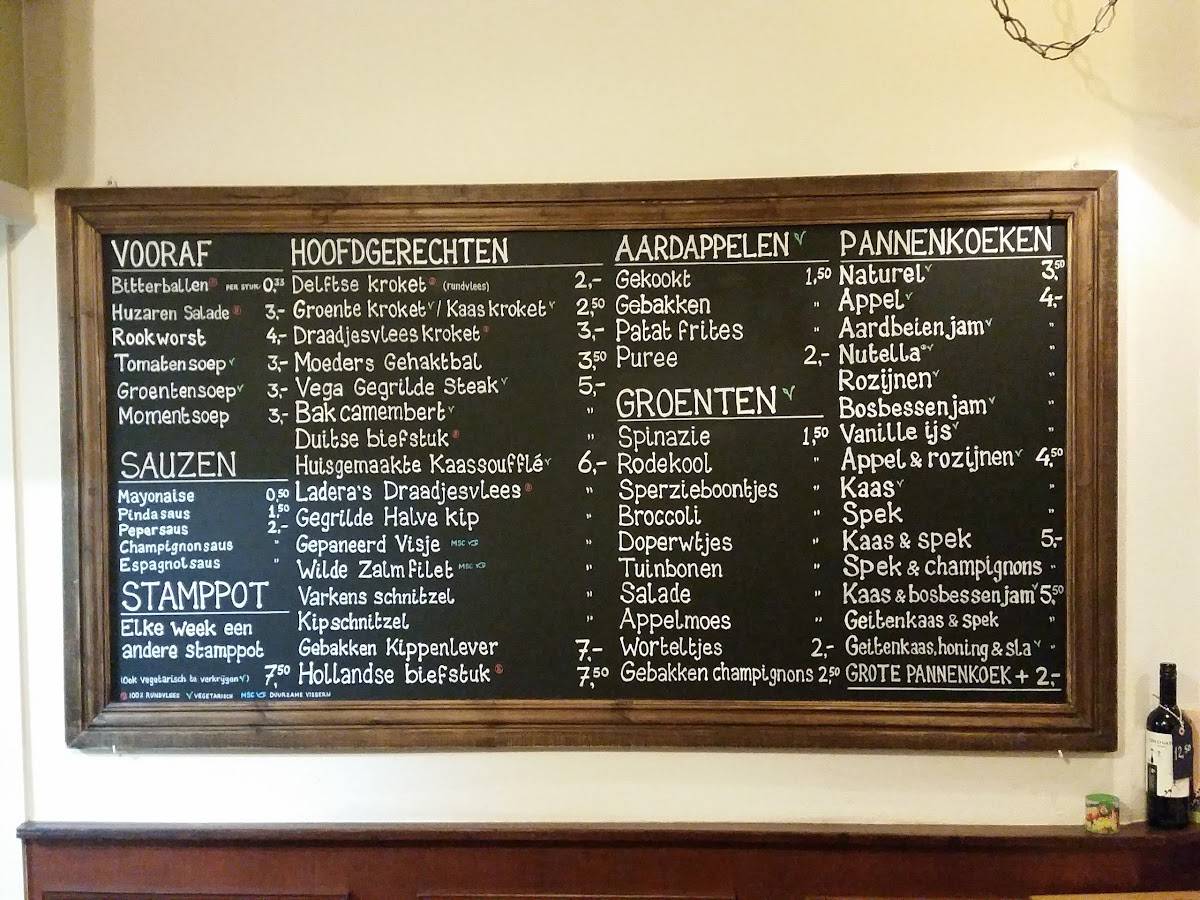 VOORAF
Bitterballen PER STUK: 0,33
Huzaren Salade 3,-
Rookworst 4,-
Tomatensoep 3,-
Groentensoep 3,-
Momentsoep 3,-
SAUZEN
Mayonaise 0,50
Pindasaus 1,50
Pepersaus 2,-
Champignonsaus "
Espagnolsaus "
STAMPPOT
Elke week een
andere stamppot
(Ook vegetarisch te verkrijgen) 7,50
100% RUNDVLEES VEGETARISCH MSC DUURZAME VISSERIJ
HOOFDGERECHTEN
Delftse kroket (rundvlees) 2,-
Groente kroket / Kaas kroket 2,50
Draadjesvlees kroket 3,-
Moeders Gehaktbal 3,50
Vega Gegrilde Steak 5,-
Bak camembert "
Duitse biefstuk "
Huisgemaakte Kaassoufflé 6,-
Ladera's Draadjesvlees "
Gegrilde Halve kip "
Gepaneerd Visje MSC "
Wilde Zalmfilet MSC "
Varkens schnitzel "
Kipschnitzel "
Gebakken Kippenlever 7,-
Hollandse biefstuk 7,50
AARDAPPELEN
Gekookt 1,50
Gebakken "
Patat frites "
Puree 2,-
GROENTEN
Spinazie 1,50
Rodekool "
Sperzieboontjes "
Broccoli "
Doperwtjes "
Tuinbonen "
Salade "
Appelmoes "
Worteltjes 2,-
Gebakken champignons 2,50
PANNENKOEKEN
Naturel 3,50
Appel 4,-
Aardbeienjam "
Nutella® "
Rozijnen "
Bosbessenjam "
Vanille ijs "
Appel & rozijnen 4,50
Kaas "
Spek "
Kaas & spek 5,-
Spek & champignons "
Kaas & bosbessenjam 5,50
Geitenkaas & spek "
Geitenkaas, honing & sla "
GROTE PANNENKOEK + 2,-
12,50